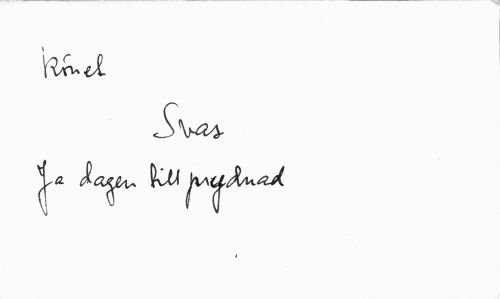 Könet
Svas
Ja dagen till prydnad